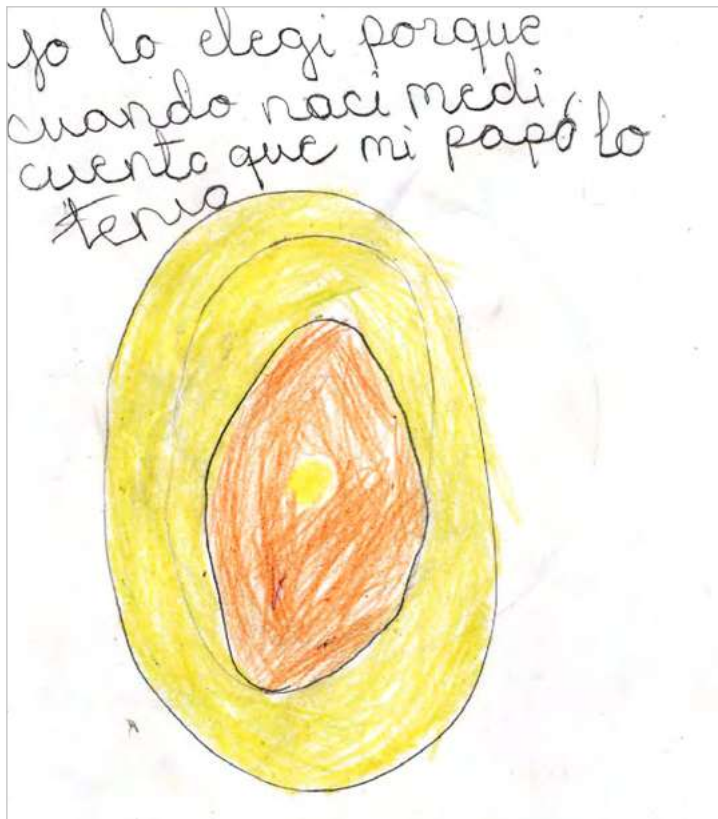 yo lo elegi porque
cuando naci medi
cuenta que mi papá lo
tenia